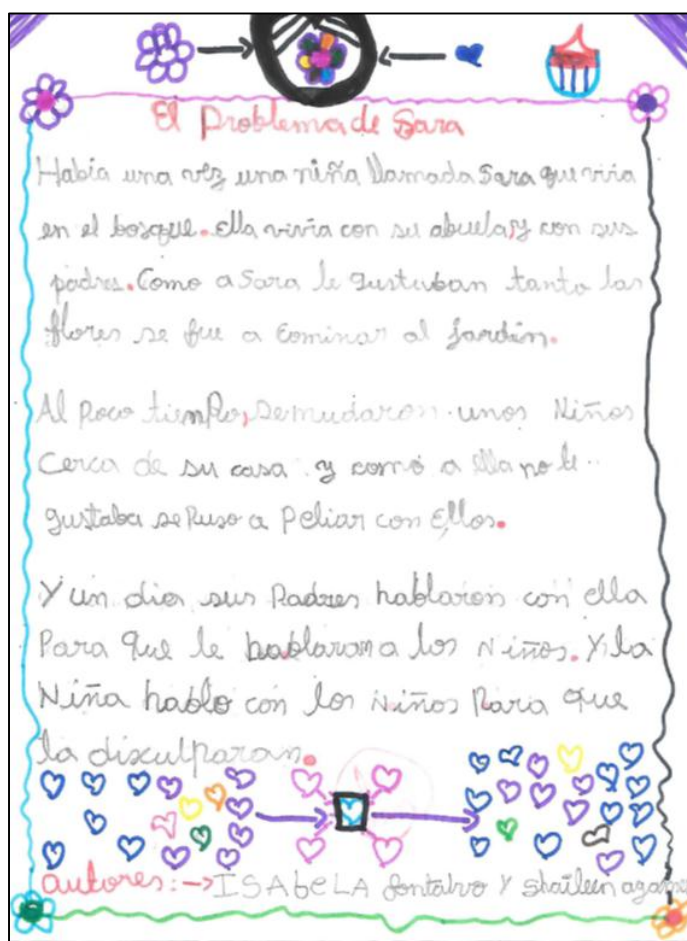 El Problema de Sara
Había una vez una niña llamada Sara que vivia
en el bosque. Ella vivia con su abuela, y con sus
padres. Como a Sara le gustaban tanto las
flores se fue a caminar al jardín.
Al poco tiempo, se mudaron unos Niños
Cerca de su casa y como a ella no le
gustaba se Puso a Peliar con Ellos.
Y un dia sus Padres hablaron con ella
Para Que le hablaran a los Niños. Y la
Niña hablo con los Niños Para que
la disculparan.
autores: → ISAbeLA fontalvo Y shaileen